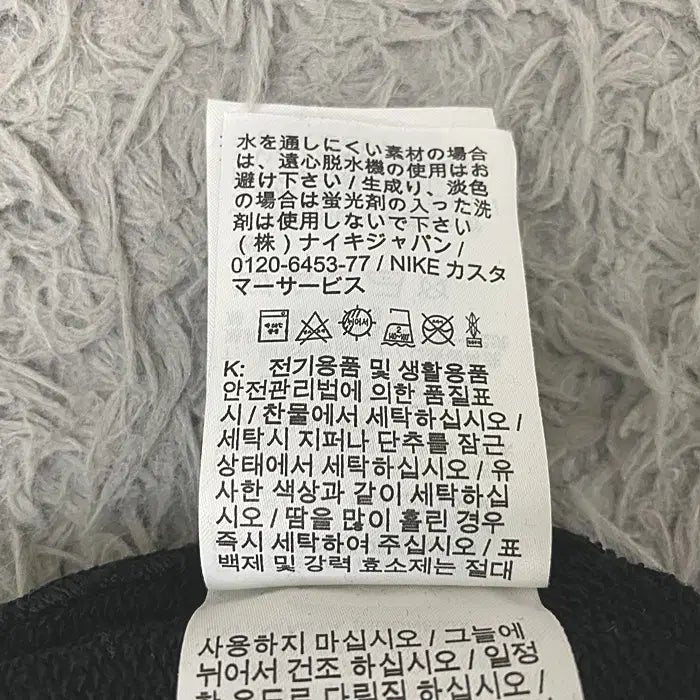 水を通しにくい素材の場合
は、遠心脱水機の使用はお
避け下さい / 生成り、淡色
の場合は蛍光剤の入った洗
剤は使用しないで下さい
(株)ナイキジャパン /
0120-6453-77 / NIKE カスタ
マーサービス
K: 전기용품 및 생활용품
안전관리법에 의한 품질표
시 / 찬물에서 세탁하십시오 /
세탁시 지퍼나 단추를 잠근
상태에서 세탁하십시오 / 유
사한 색상과 같이 세탁하십
시오 / 땀을 많이 흘린 경우
즉시 세탁하여 주십시오 / 표
백제 및 강력 효소제는 절대
사용하지 마십시오 / 그늘에
뉘어서 건조 하십시오 / 일정
한 온도로 다림질 하십시오 /